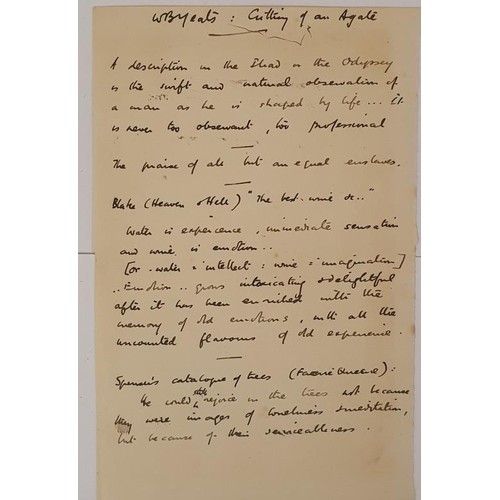 WBYeats : Cutting of an Agate
A description in the Iliad or the Odyssey
is the swift and natural observation of
a man as he is shaped by life... It
is never too observant, too professional
The praise of all but an equal enslaves.
Blake (Heaven & Hell) "The best wine &.."
Water is experience, immediate sensation
and wine is emotion..
[or water = intellect : wine = imagination]
..Emotion.. grows intoxicating & delightful
after it has been enriched with the
memory of old emotions, with all the
uncounted flavours of old experience.
Spenser's catalogue of trees (Faerie Queene):
He could still rejoice in the trees not because
they were images of loneliness & meditation,
but because of their serviceableness.